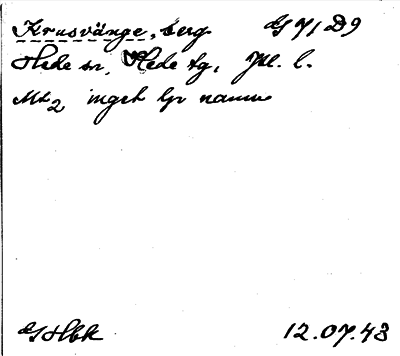 Krusvänge, berg GS 71 D9
Hede sn, Hede tg, Jtl. l.
Mt2 inget lpr namn
GS Hbk 12.07.43